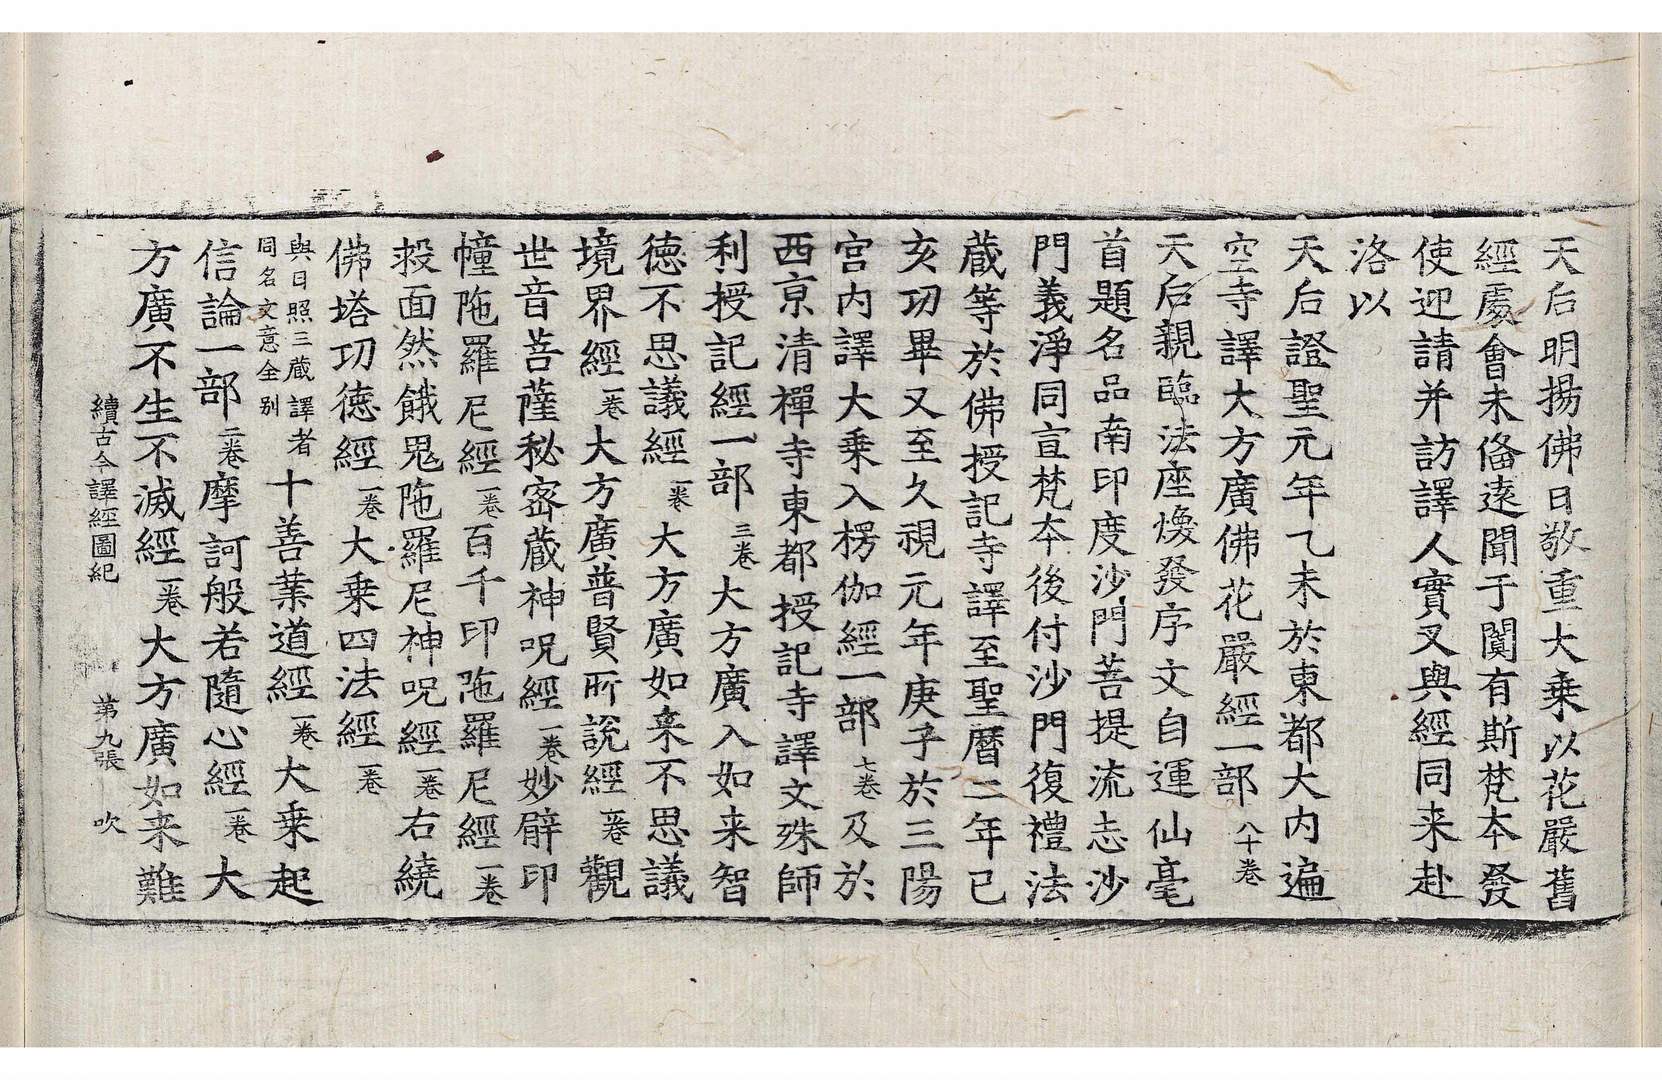 天后明揚佛日敬重大乗以花嚴舊
經處會未俻遠聞于闐有斯梵夲發
使迎請并訪譯人實叉與經同来赴
洛以
天后證聖元年乙未於東都大内遍
空寺譯大方廣佛花嚴經一部八十卷
天后親臨法座煥發序文自運仙毫
首題名品南印度沙門菩提流志沙
門義淨同宣梵夲後付沙門復禮法
蔵等於佛授記寺譯至聖曆二年己
亥㓛畢又至久視元年庚子於三陽
宮内譯大乗入楞伽經一部七卷及於
西亰清禪寺東都授記寺譯文殊師
利授記經一部三卷大方廣入如来智
徳不思議經一卷大方廣如来不思議
境界經一卷大方廣普賢所説經一卷觀
世音菩薩秘宻蔵神呪經一卷妙辟印
幢陁羅尼經一卷百千印陁羅尼經一卷
救面然餓鬼陁羅尼神呪經一卷右繞
佛塔㓛徳經一卷大乗四法經一卷
與日照三蔵譯者同名文意全别十善業道經一卷大乗起
信論一部二卷摩訶般若隨心經一卷大
方廣不生不滅經一卷大方廣如来難
續古今譯經圖紀 第九張 吹